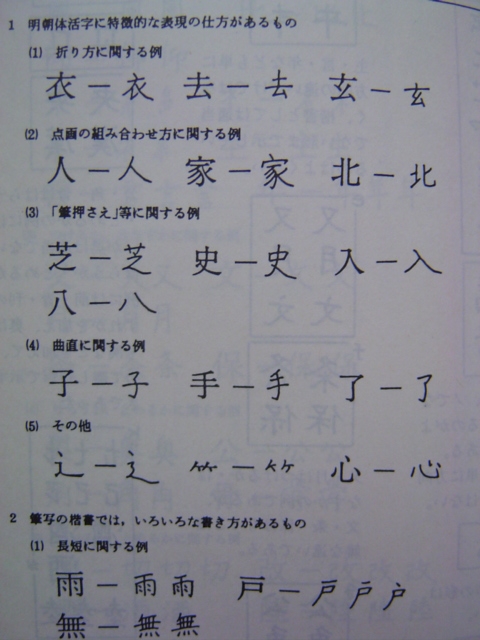 1 明朝体活字に特徴的な表現の仕方があるもの
(1) 折り方に関する例
衣－衣 去－去 玄－玄
(2) 点画の組み合わせ方に関する例
人－人 家－家 北－北
(3) 「筆押さえ」等に関する例
芝－芝 史－史 入－入
八－八
(4) 曲直に関する例
子－子 手－手 了－了
(5) その他
辶－辶 ⺮－⺮ 心－心
2 筆写の楷書では，いろいろな書き方があるもの
(1) 長短に関する例
雨－雨 雨 戸－戸 戸 戸
無－無 無